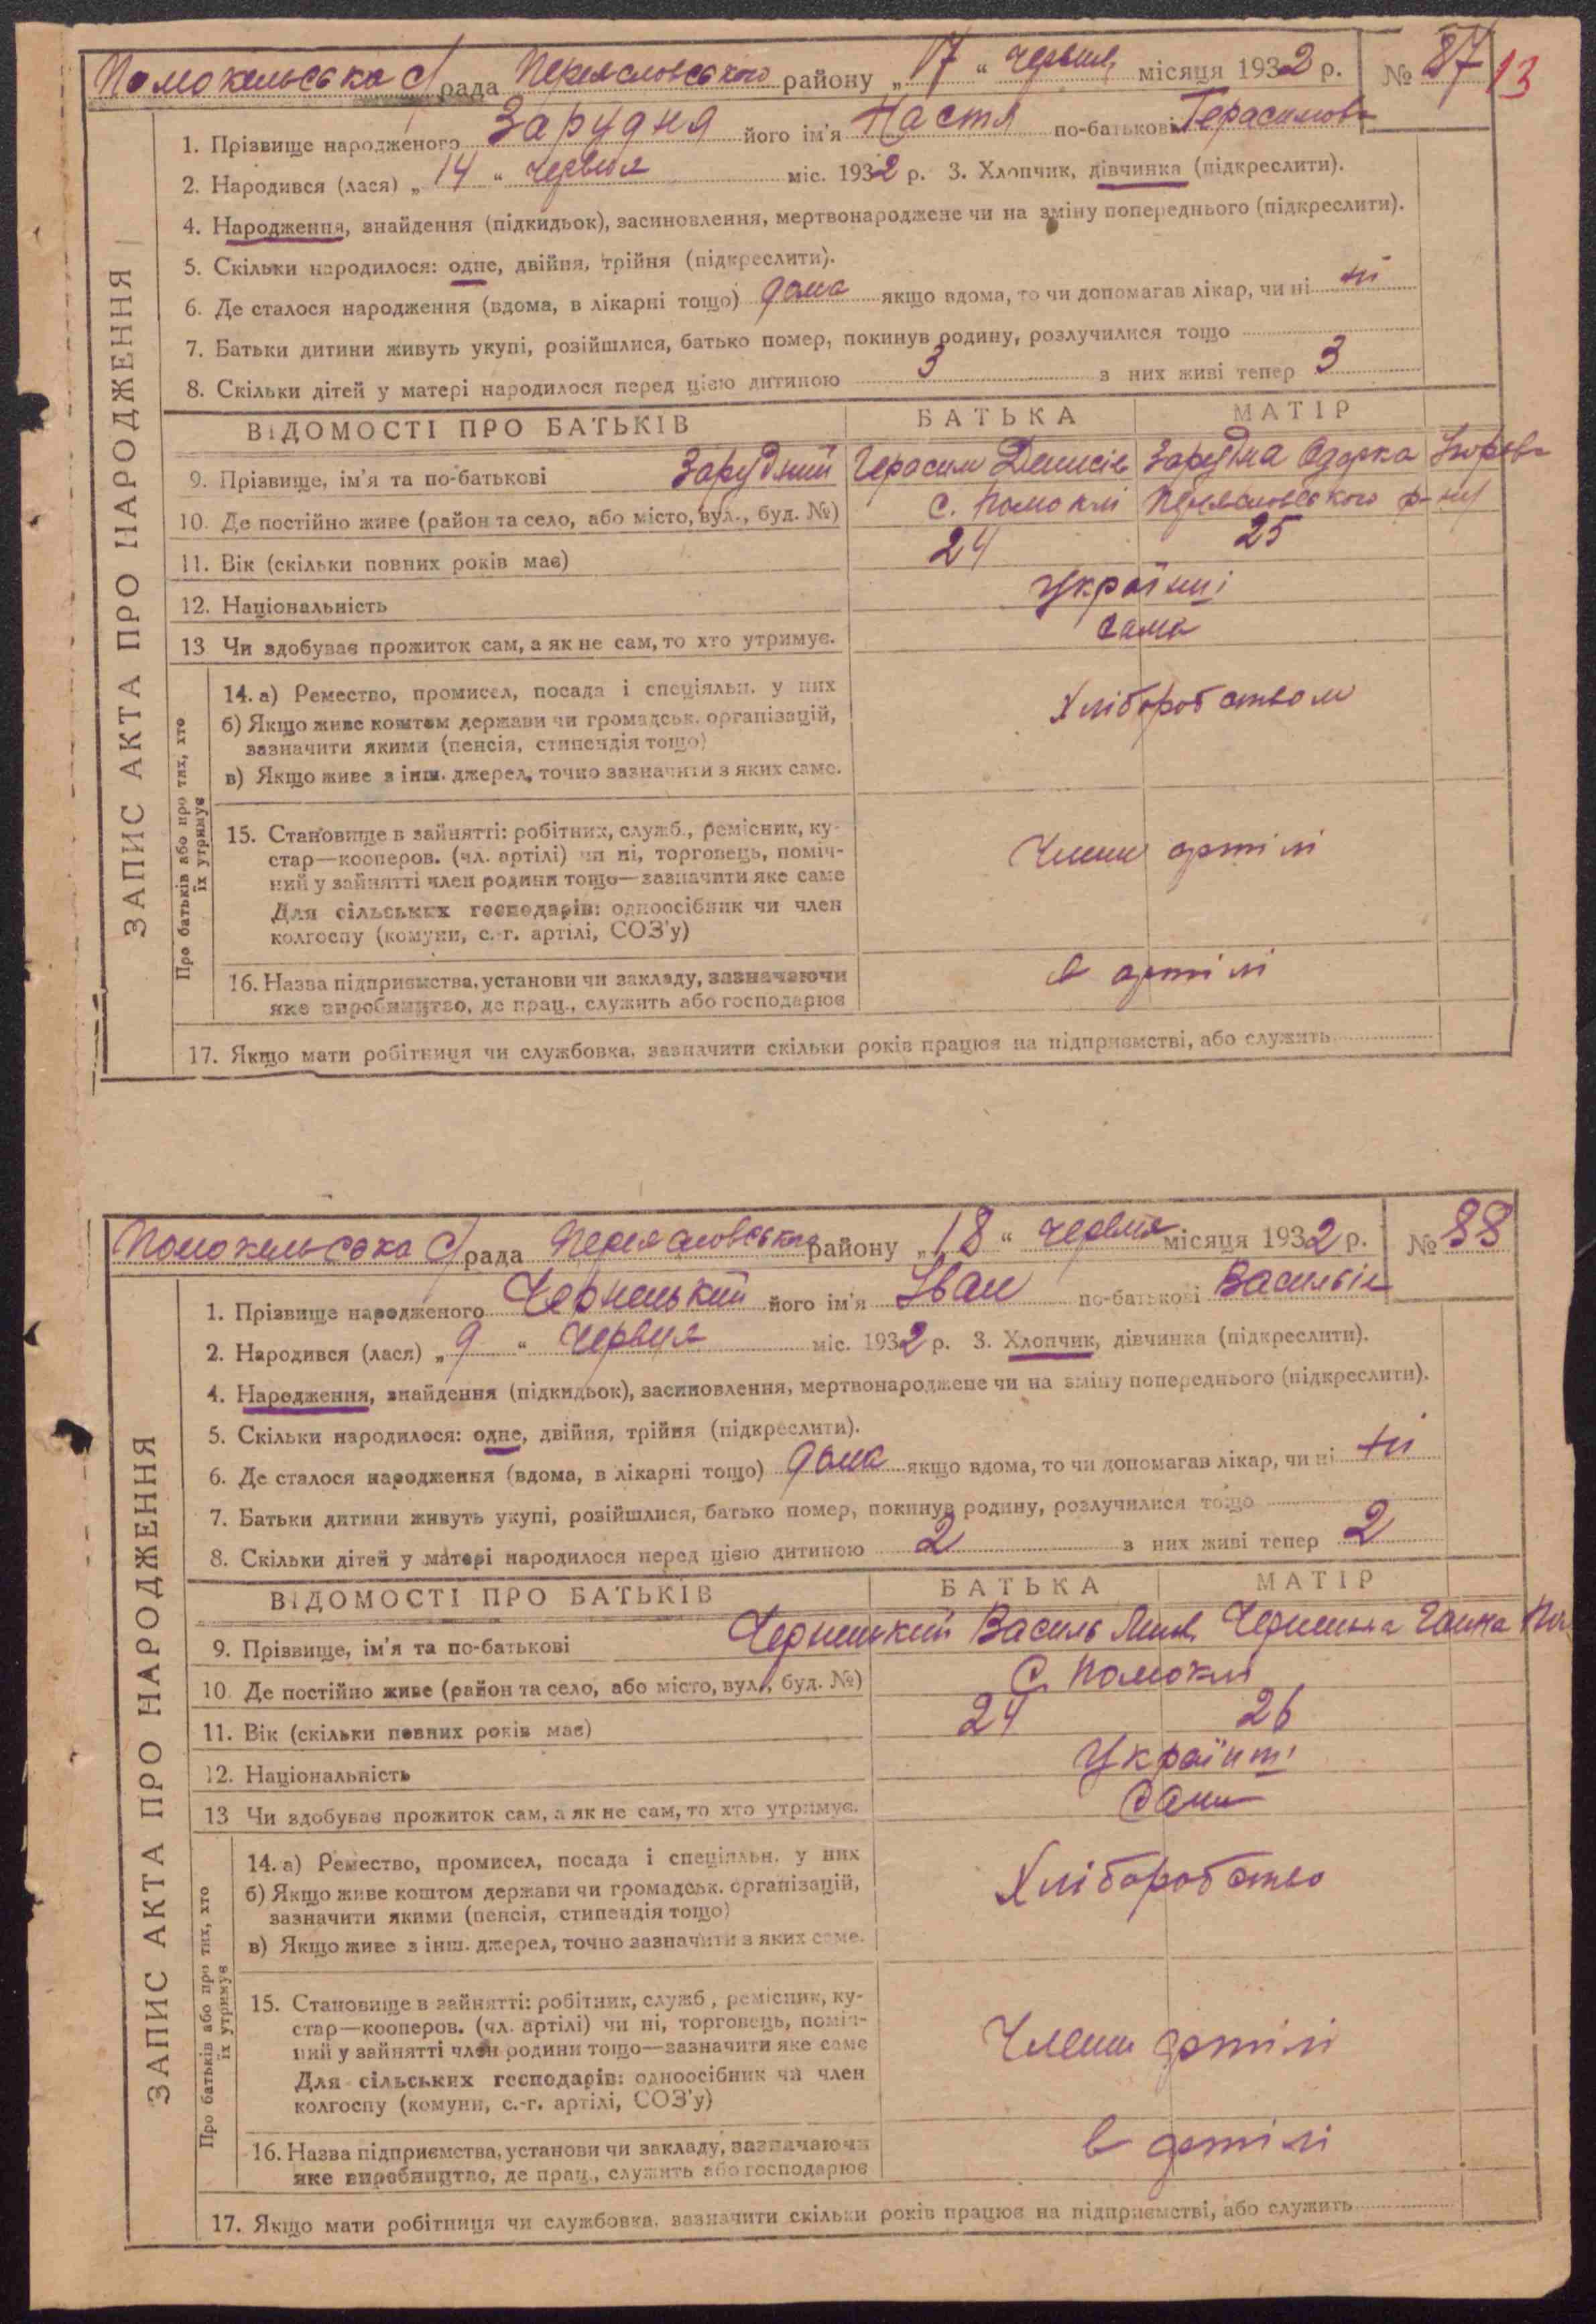 Помокельська с/рада Переясловського району „17“ червня місяця 1932 р. № 87 13
1. Прізвище народженого Зарудня його ім'я Настя по-батькові Герасимовна
2. Народився (лася) „14“ червня міс. 1932 р. 3. Хлопчик, дівчинка (підкреслити).
4. Народження, знайдення (підкидьок), засиновлення, мертвонароджене чи на зміну попереднього (підкреслити).
5. Скільки народилося: одне, двійня, трійня (підкреслити).
6. Де сталося народження (вдома, в лікарні тощо) дома якщо вдома, то чи допомагав лікар, чи ні ні
7. Батьки дитини живуть укупі, розійшлися, батько помер, покинув родину, розлучилися тощо
8. Скільки дітей у матері народилося перед цією дитиною 3 з них живі тепер 3
ВІДОМОСТІ ПРО БАТЬКІВ БАТЬКА МАТІР
9. Прізвище, ім'я та по-батькові Зарудний Герасим Денисів Зарудна Одарка
10. Де постійно живе (район та село, або місто, вул., буд. №) с. Помоклі Переясловського р-ну
11. Вік (скільки повних років має) 24 25
12. Національність Українці
13 Чи здобуває прожиток сам, а як не сам, то хто утримує. сами
14. а) Ремество, промисел, посада і спеціяльн. у них
б) Якщо живе коштом держави чи громадськ. організацій,
зазначити якими (пенсія, стипендія тощо)
в) Якщо живе з інш. джерел, точно зазначити з яких саме.
Хліборобством
15. Становище в зайнятті: робітник, служб., ремісник, ку-
стар—кооперов. (чл. артілі) чи ні, торговець, поміч-
ний у зайнятті член родини тощо—зазначити яке саме
Для сільських господарів: одноосібник чи член
колгоспу (комуни, с.-г. артілі, СОЗ'у)
Члени артілі
16. Назва підприємства, установи чи закладу, зазначаючи
яке виробництво, де прац., служить або господарює
в артілі
17. Якщо мати робітниця чи службовка, зазначити скільки років працює на підприємстві, або служить
ЗАПИС АКТА ПРО НАРОДЖЕННЯ
Про батьків або про тих, хто
їх утримує
Помокельська с/рада Переясловського району „18“ червня місяця 1932 р. № 88
1. Прізвище народженого Чернецький його ім'я Іван по-батькові Васильів
2. Народився (лася) „9“ червня міс. 1932 р. 3. Хлопчик, дівчинка (підкреслити).
4. Народження, знайдення (підкидьок), засиновлення, мертвонароджене чи на зміну попереднього (підкреслити).
5. Скільки народилося: одне, двійня, трійня (підкреслити).
6. Де сталося народження (вдома, в лікарні тощо) дома якщо вдома, то чи допомагав лікар, чи ні ні
7. Батьки дитини живуть укупі, розійшлися, батько помер, покинув родину, розлучилися тощо
8. Скільки дітей у матері народилося перед цією дитиною 2 з них живі тепер 2
ВІДОМОСТІ ПРО БАТЬКІВ БАТЬКА МАТІР
9. Прізвище, ім'я та по-батькові Чернецький Василь Ганна
10. Де постійно живе (район та село, або місто, вул., буд. №) С. Помоклі
11. Вік (скільки повних років має) 24 26
12. Національність Українці
13 Чи здобуває прожиток сам, а як не сам, то хто утримує. Сами
14. а) Ремество, промисел, посада і спеціяльн. у них
б) Якщо живе коштом держави чи громадськ. організацій,
зазначити якими (пенсія, стипендія тощо)
в) Якщо живе з інш. джерел, точно зазначити з яких саме.
Хліборобство
15. Становище в зайнятті: робітник, служб., ремісник, ку-
стар—кооперов. (чл. артілі) чи ні, торговець, поміч-
ний у зайнятті член родини тощо—зазначити яке саме
Для сільських господарів: одноосібник чи член
колгоспу (комуни, с.-г. артілі, СОЗ'у)
Члени артілі
16. Назва підприємства, установи чи закладу, зазначаючи
яке виробництво, де прац., служить або господарює
в артілі
17. Якщо мати робітниця чи службовка, зазначити скільки років працює на підприємстві, або служить
ЗАПИС АКТА ПРО НАРОДЖЕННЯ
Про батьків або про тих, хто
їх утримує